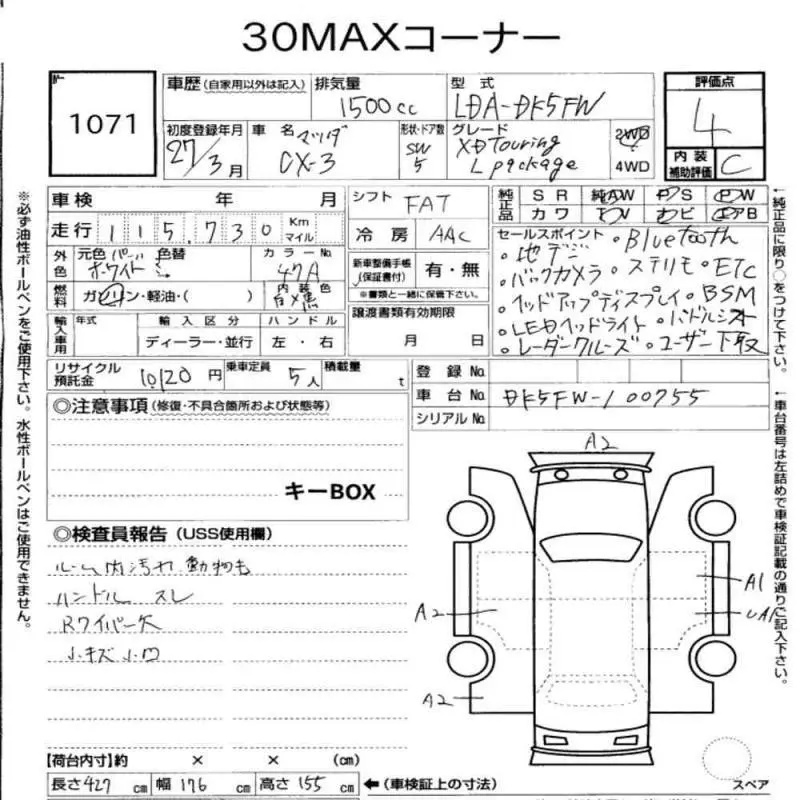 30MAXコーナー
1071
車歴 (自家用以外は記入)
排気量
1500cc
型式
LDA-DK5FW
評価点
4
初度登録年月
27/3月
車名
マツダ
CX-3
形状・ドア数
SW
5
グレード
XDTouring
Lpackage
2WD
4WD
内装
補助評価
C
車検 年 月
シフト
FAT
純正品
SR 純AW PS PW
カワ TV ナビ エアB
走行 115,730 Km
マイル
冷房 AAC
セールスポイント
・Bluetooth
・地デジ
・バックカメラ ・ステリモ ・ETC
・ヘッドアップディスプレイ ・BSM
・LEDヘッドライト ・パドルシフト
・レーダークルーズ ・ユーザー下取
外色
元色 パール
ホワイト
色替
カラーNo.
47A
新車整備手帳
(保証書付)
有・無
※書類と一緒に保管下さい。
燃料
ガソリン・軽油・( )
内装色
白×黒
譲渡書類有効期限
月 日
輸入車用
年式
輸入区分
ハンドル
ディーラー・並行
左・右
リサイクル
預託金
10120円
乗車定員
5人
積載量
t
登録No.
車台No.
DK5FW-100755
シリアルNo.
◎注意事項 (修復・不具合箇所および状態等)
キーBOX
◎検査員報告 (USS使用欄)
ルーム内汚れ 動物も
ハンドル スレ
Rワイパー欠
小キズ小凹
A2
A1
UA1
A2
A2
【荷台内寸】約 × × (cm)
長さ427cm 幅176cm 高さ155cm
←(車検証上の寸法)
スペア
※必ず油性ボールペンをご使用下さい。水性ボールペンはご使用できません。
←純正品に限り○をつけて下さい。
←車台番号は左詰めで車検証記載の通りご記入下さい。